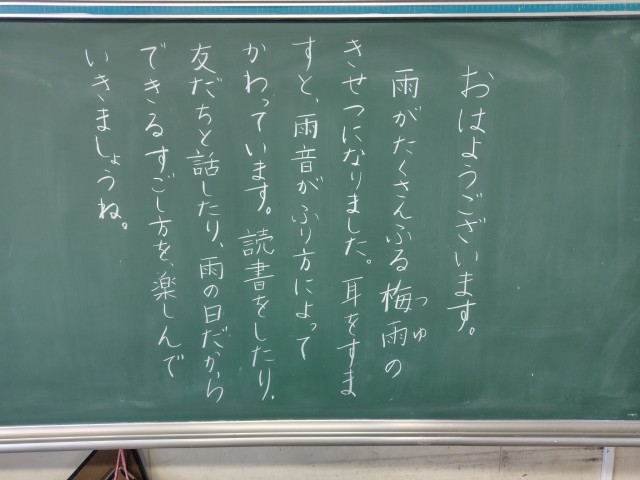 おはようございます。
雨がたくさんふる梅雨の
つゆ
きせつになりました。耳をすま
すと、雨音がふり方によって
かわっています。読書をしたり、
友だちと話したり、雨の日だから
できるすごし方を、楽しんで
いきましょうね。